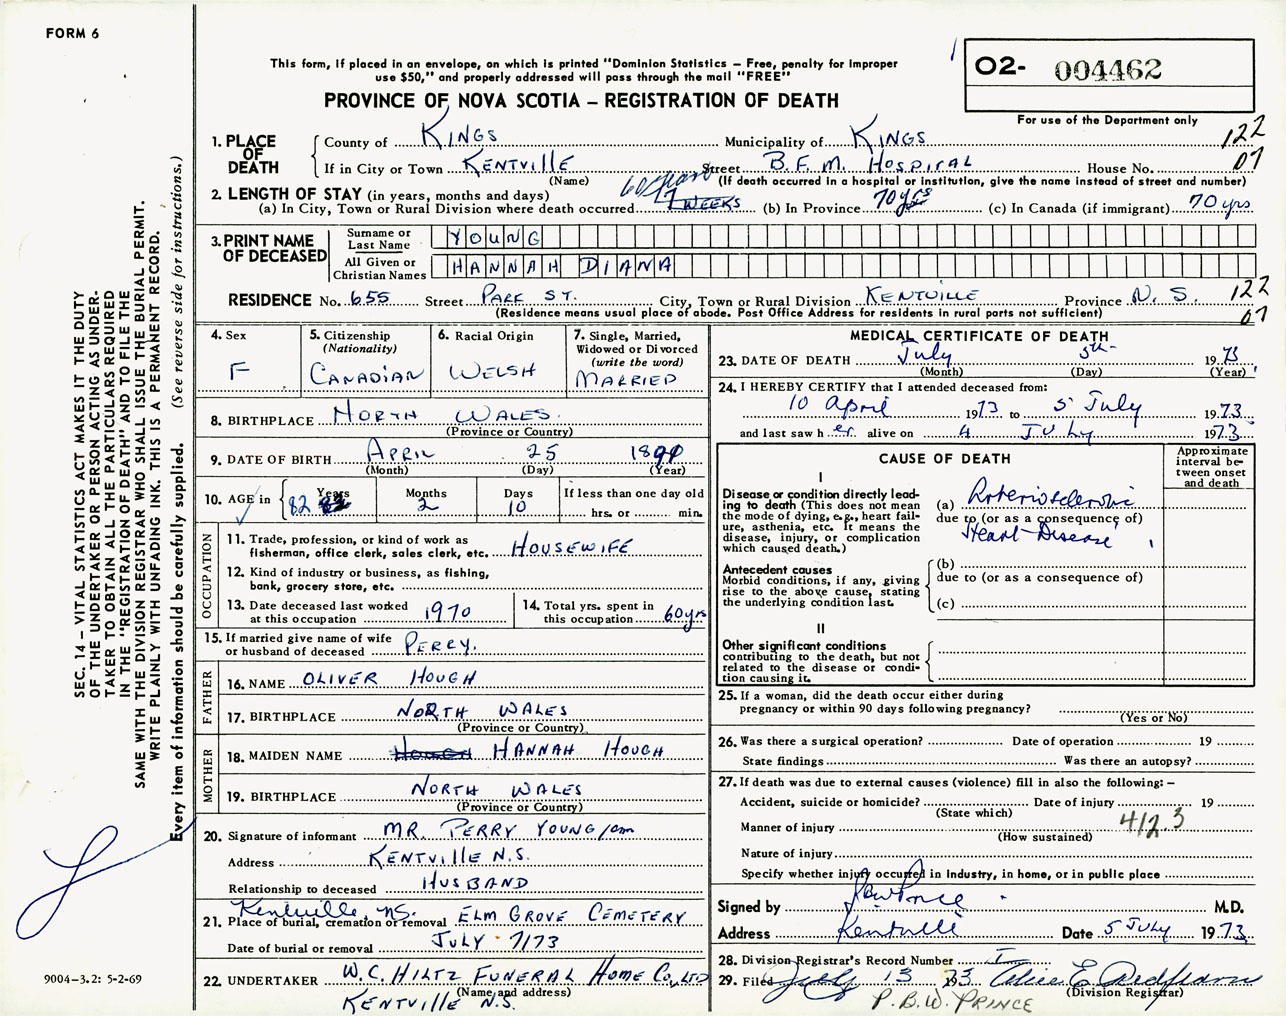 FORM 6
This form, if placed in an envelope, on which is printed "Dominion Statistics – Free, penalty for improper
use $50," and properly addressed will pass through the mail "FREE"
PROVINCE OF NOVA SCOTIA – REGISTRATION OF DEATH
02- 004462
For use of the Department only
122
07
1. PLACE OF DEATH
County of Kings Municipality of Kings
If in City or Town Kentville Street B.F.M. Hospital House No.
(Name) (If death occurred in a hospital or institution, give the name instead of street and number)
2. LENGTH OF STAY (in years, months and days)
60 years
(a) In City, Town or Rural Division where death occurred 7 WEEKS (b) In Province 70 yrs (c) In Canada (if immigrant) 70 yrs
3. PRINT NAME OF DECEASED
Surname or Last Name YOUNG
All Given or Christian Names HANNAH DIANA
RESIDENCE No. 655 Street PARK ST. City, Town or Rural Division KENTVILLE Province N.S.
(Residence means usual place of abode. Post Office Address for residents in rural parts not sufficient)
122
07
4. Sex
F
5. Citizenship
(Nationality)
CANADIAN
6. Racial Origin
WELSH
7. Single, Married,
Widowed or Divorced
(write the word)
MARRIED
8. BIRTHPLACE NORTH WALES
(Province or Country)
9. DATE OF BIRTH APRIL 25
(Month) (Day) (Year)
10. AGE in 82 Years
Months 2
Days 10
If less than one day old
hrs. or min.
OCCUPATION
11. Trade, profession, or kind of work as
fisherman, office clerk, sales clerk, etc. HOUSEWIFE
12. Kind of industry or business, as fishing,
bank, grocery store, etc.
13. Date deceased last worked
at this occupation 1970
14. Total yrs. spent in
this occupation 60 yrs
15. If married give name of wife
or husband of deceased PERRY.
FATHER
16. NAME OLIVER HOUGH
17. BIRTHPLACE NORTH WALES
(Province or Country)
MOTHER
18. MAIDEN NAME HANNAH HOUGH
19. BIRTHPLACE NORTH WALES
(Province or Country)
20. Signature of informant MR. PERRY YOUNG
Address KENTVILLE N.S.
Relationship to deceased HUSBAND
Kentville, N.S.
21. Place of burial, cremation or removal ELM GROVE CEMETERY
Date of burial or removal JULY 7/73
22. UNDERTAKER W.C. HILTZ FUNERAL HOME CO., LTD
(Name and address)
KENTVILLE N.S.
MEDICAL CERTIFICATE OF DEATH
23. DATE OF DEATH July 5th 1973
(Month) (Day) (Year)
24. I HEREBY CERTIFY that I attended deceased from:
10 April 1973 to 5 July 1973
and last saw her alive on 4 JULY 1973
CAUSE OF DEATH
Approximate
interval be-
tween onset
and death
I
Disease or condition directly lead-
ing to death (This does not mean
the mode of dying, e.g., heart fail-
ure, asthenia, etc. It means the
disease, injury, or complication
which caused death.)
(a) Arteriosclerotic
due to (or as a consequence of)
Heart Disease
Antecedent causes
Morbid conditions, if any, giving
rise to the above cause, stating
the underlying condition last.
(b)
due to (or as a consequence of)
(c)
II
Other significant conditions
contributing to the death, but not
related to the disease or condi-
tion causing it.
25. If a woman, did the death occur either during
pregnancy or within 90 days following pregnancy?
(Yes or No)
26. Was there a surgical operation? Date of operation 19
State findings Was there an autopsy?
27. If death was due to external causes (violence) fill in also the following:–
Accident, suicide or homicide? Date of injury 19
(State which)
Manner of injury 412.3
(How sustained)
Nature of injury
Specify whether injury occurred in industry, in home, or in public place
Signed by M.D.
Address Kentville Date 5 JULY 1973
28. Division Registrar's Record Number
29. Filed July 13 1973
(Division Registrar)
P.B.W. PRINCE
SEC. 14 – VITAL STATISTICS ACT MAKES IT THE DUTY
OF THE UNDERTAKER OR PERSON ACTING AS UNDER-
TAKER TO OBTAIN ALL THE PARTICULARS REQUIRED
IN THE "REGISTRATION OF DEATH" AND TO FILE THE
SAME WITH THE DIVISION REGISTRAR WHO SHALL ISSUE THE BURIAL PERMIT.
WRITE PLAINLY WITH UNFADING INK. THIS IS A PERMANENT RECORD.
Every item of information should be carefully supplied. (See reverse side for instructions.)
9004-3.2: 5-2-69